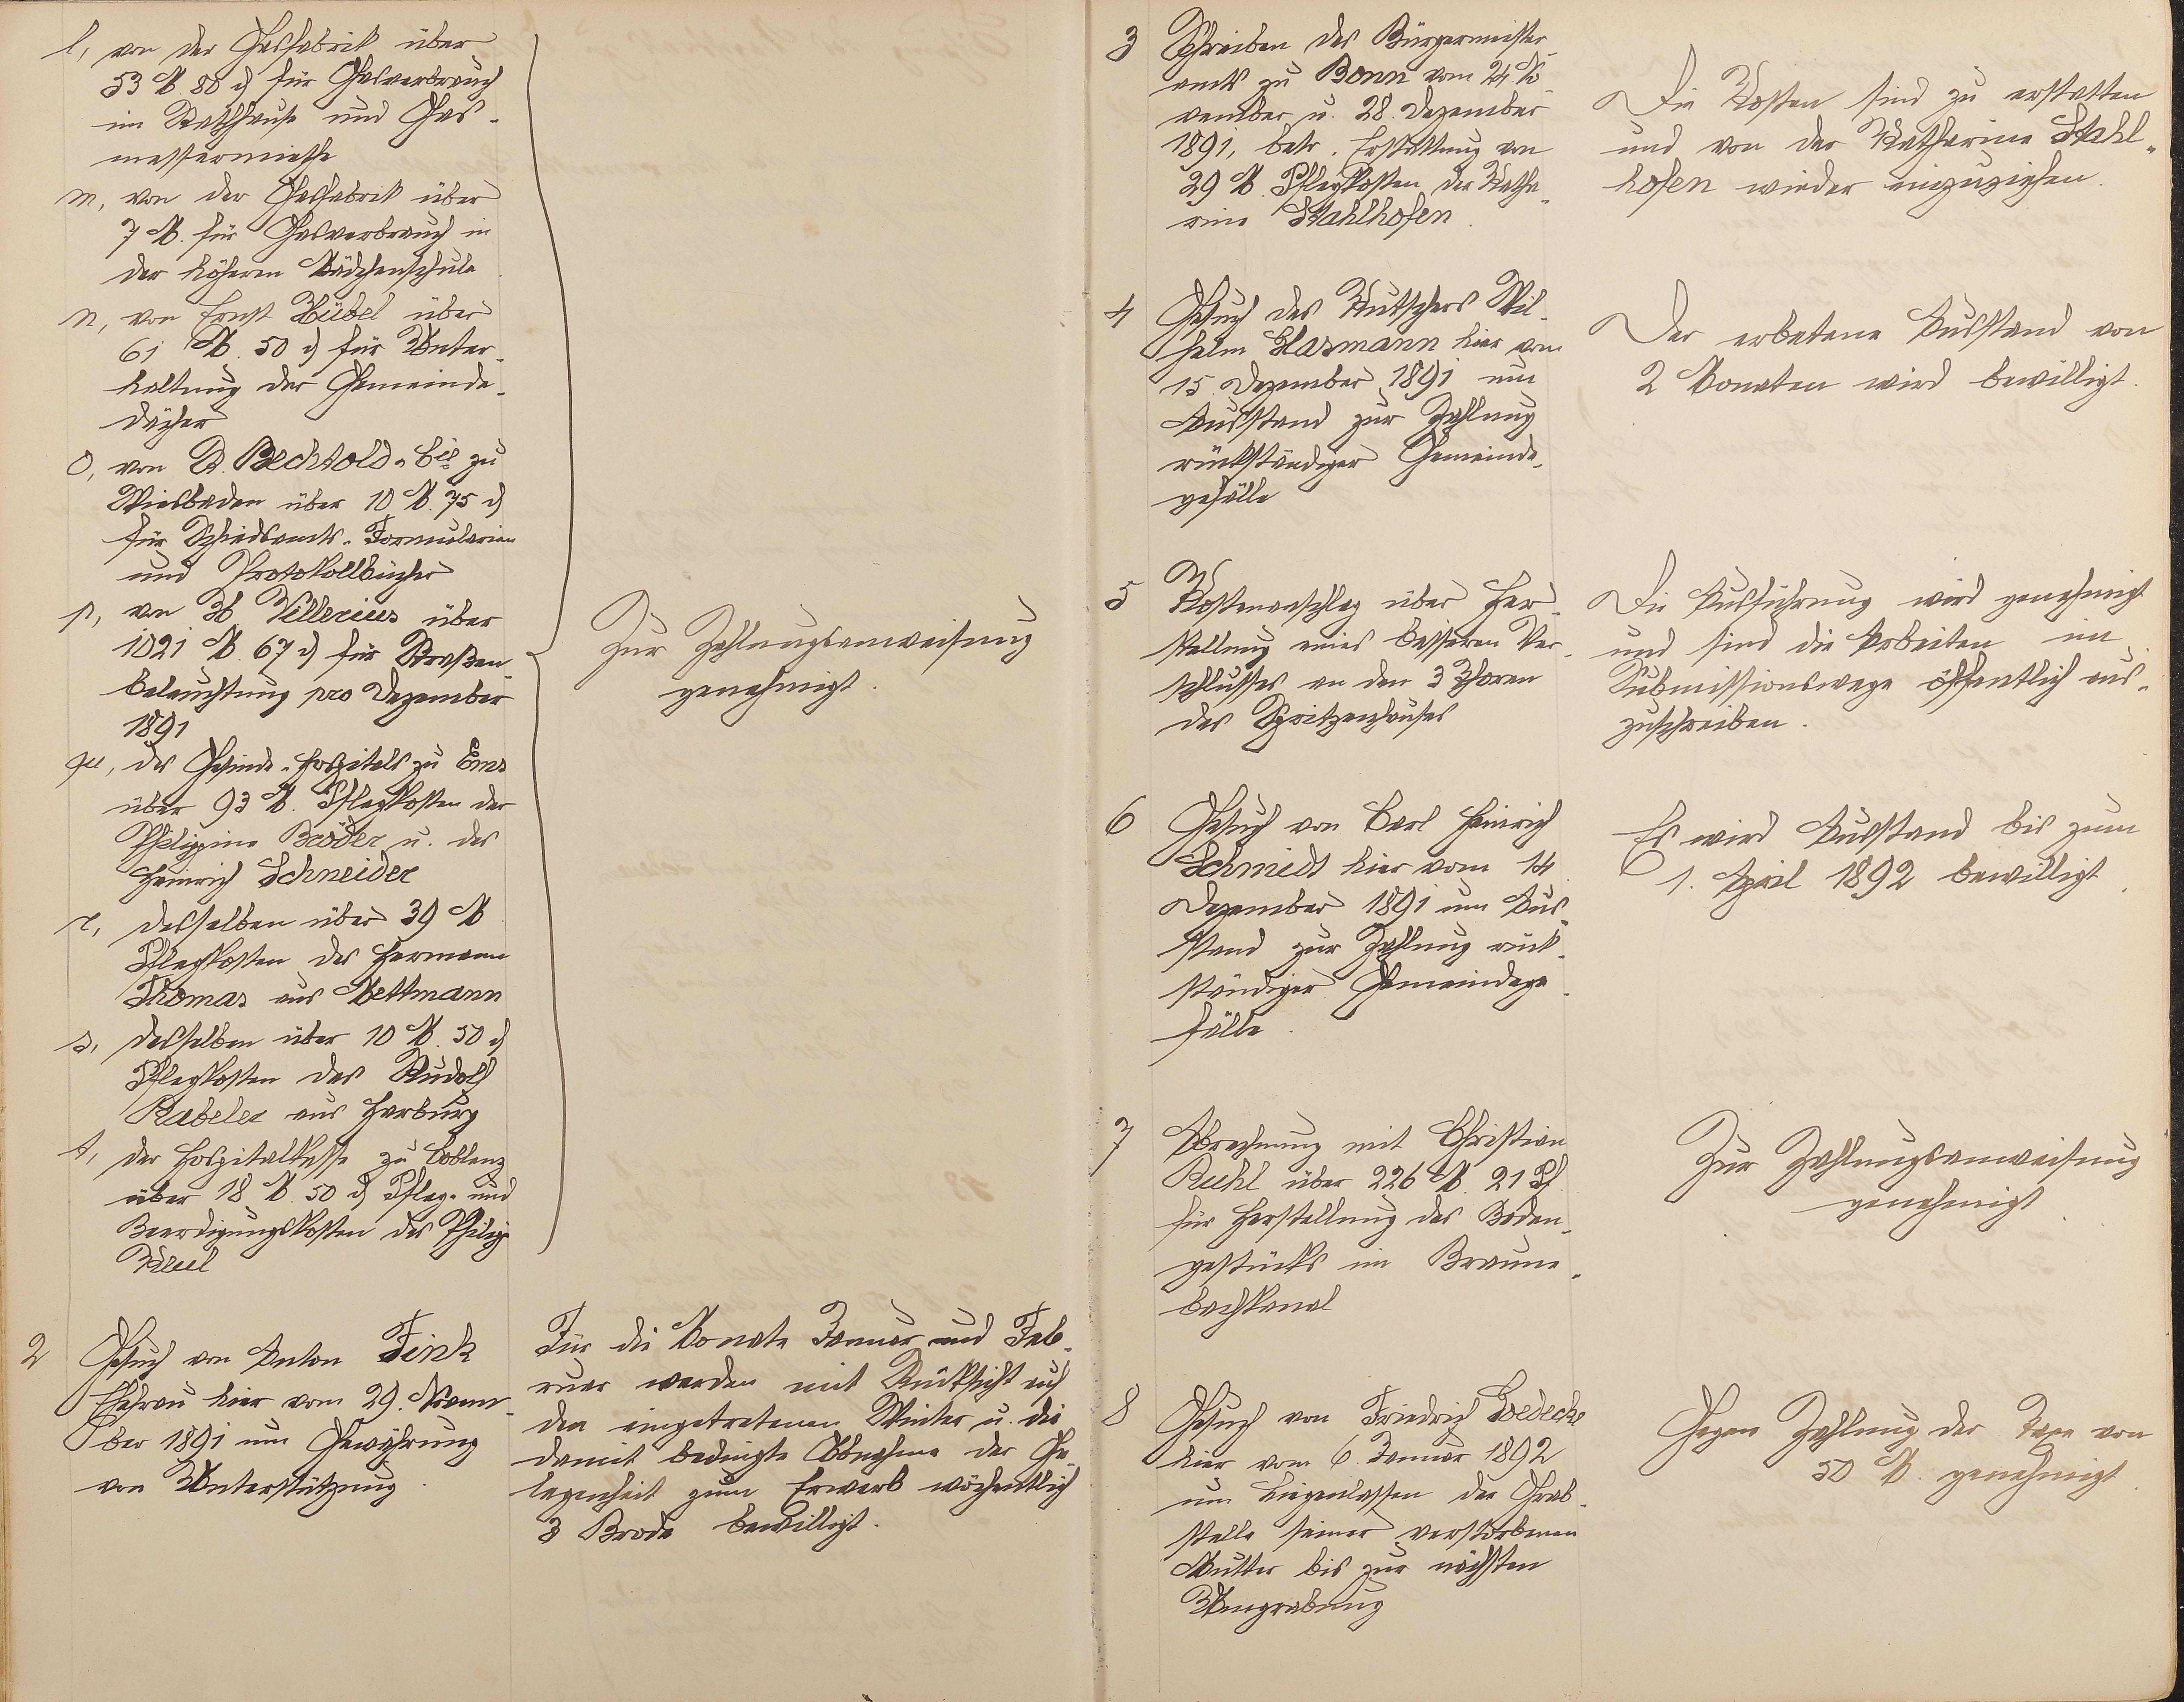 l, von der Gasfabrik über
53 M. 80 ₰ für Gasverbrauch
im Rathhause und Gas-
messermiethe
m, von der Gasfabrik über
7 M. für Gasverbrauch in
der höheren Mädchenschule
n, von Ernst Hübel über
61 M. 50 ₰ für Unter-
haltung der Gemeinde-
dächer
o, von R. Bechtold & Cie zu
Wiesbaden über 10 M. 75 ₰
für Schiedsamts-Formularien
und Protokollbücher
p, von H Villerius über
1021 M. 67 ₰ für Straßen-
beleuchtung pro Dezember
1891
qu, des Gesinde-Hospitals zu Ems
über 93 M. Pflegkosten der
Philippine Bröder u. des
Heinrich Schneider
r, desselben über 39 M
Pflegkosten des Hermann
Thomas aus Mettmann
s, desselben über 10 M. 50 ₰
Pflegkosten des Rudolf
Rabeler aus Harburg
t, der Hospitalkasse zu Coblenz
über 18 M. 50 ₰ Pfleg- und
Beerdigungskosten des Philipp
Keul
Zur Zahlungsanweisung
genehmigt.
2 Gesuch von Anton Fink
Ehefrau hier vom 29. Novem-
ber 1891 um Gewährung
von Unterstützung.
Für die Monate Januar und Feb-
ruar werden mit Rücksicht auf
den eingetretenen Winter u. die
damit bedingte Abnahme der Ge-
legenheit zum Erwerb wöchentlich
3 Brode bewilligt.
3 Schreiben des Bürgermeister-
amts zu Bonn vom 24. No-
vember u. 28. Dezember
1891, betr. Erstattung von
29 M. Pflegkosten der Katha-
rine Stahlhofen.
Die Kosten sind zu erstatten
und von der Katharine Stahl-
hofen wieder einzuziehen.
4 Gesuch des Kutschers Wil-
helm Hasmann hier vom
15. Dezember 1891 um
Ausstand zur Zahlung
rückständiger Gemeinde-
gefälle
Der erbetene Ausstand von
2 Monaten wird bewilligt.
5 Kostenanschlag über Her-
stellung eines besseren Ver-
schlusses an den 3 Thoren
des Spritzenhauses
Die Ausführung wird genehmigt
und sind die Arbeiten im
Submissionswege öffentlich aus-
zuschreiben.
6 Gesuch von Carl Heinrich
Schmidt hier vom 14
Dezember 1891 um Aus-
stand zur Zahlung rück-
ständiger Gemeindege-
fälle.
Es wird Ausstand bis zum
1. April 1892 bewilligt.
7 Abrechnung mit Christian
Ruhl über 226 M. 21 Pf.
für Herstellung des Boden-
gestücks im Braune-
bachkanal
Zur Zahlungsanweisung
genehmigt.
8 Gesuch von Friedrich Goedecke
hier vom 6. Januar 1892
um Liegenlassen der Grab-
stelle seiner verstorbenen
Mutter bis zur nächsten
Umgrabung
Gegen Zahlung der Taxe von
50 M. genehmigt.